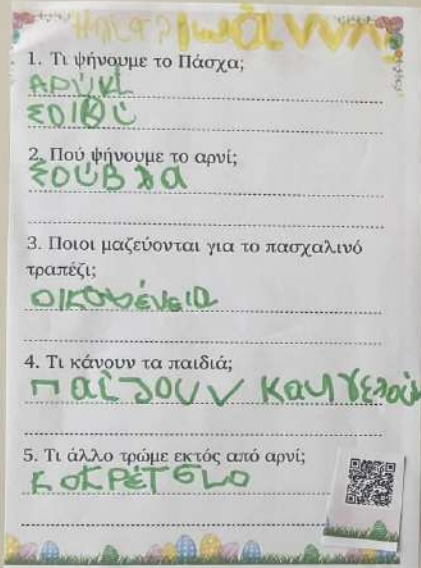 Ιωάννη
1. Τι ψήνουμε το Πάσχα;
ΑΡΥΚΙ
ΣΟΙΚΙ
2. Πού ψήνουμε το αρνί;
ΣΟΥΒλα
3. Ποιοι μαζεύονται για το πασχαλινό
τραπέζι;
ΟΙΚΟΥΈνεια
4. Τι κάνουν τα παιδιά;
παίζουν και γελούν
5. Τι άλλο τρώμε εκτός από αρνί;
ΚΟΚΡΈΤΣΙΟ